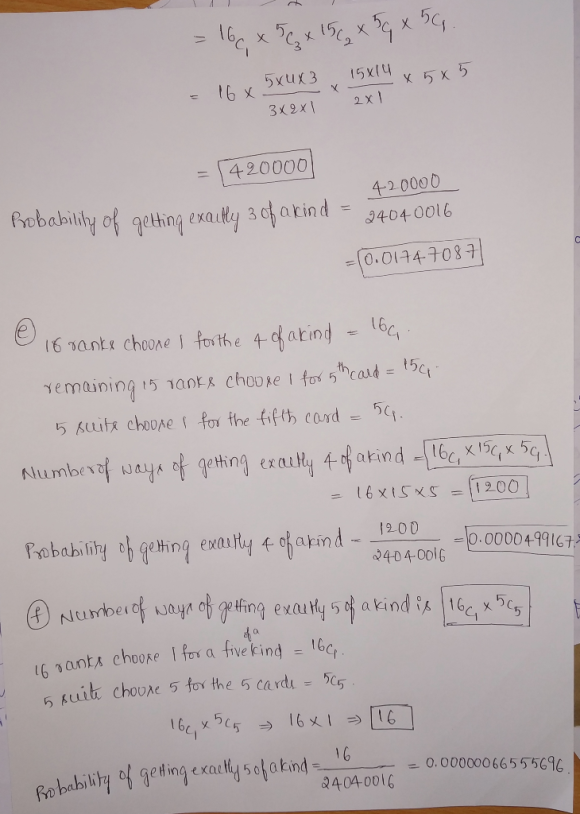 = 16C₁ x 5C₃ x 15C₂ x 5C₁ x 5C₁.
= 16 x (5x4x3)/(3x2x1) x (15x14)/(2x1) x 5 x 5
= 420000
Probability of getting exactly 3 of a kind = 420000/24040016
= 0.01747087
(e) 16 ranks choose 1 for the 4 of a kind = 16C₁.
remaining 15 ranks choose 1 for 5th card = 15C₁.
5 suits choose 1 for the fifth card = 5C₁.
Number of ways of getting exactly 4 of a kind = 16C₁ x 15C₁ x 5C₁.
= 16 x 15 x 5 = 1200
Probability of getting exactly 4 of a kind = 1200/24040016 = 0.0000499167
(f) Number of ways of getting exactly 5 of a kind is 16C₁ x 5C₅
16 ranks choose 1 for a five of a kind = 16C₁.
5 suits choose 5 for the 5 cards = 5C₅.
16C₁ x 5C₅ ⇒ 16 x 1 ⇒ 16
Probability of getting exactly 5 of a kind = 16/24040016 = 0.00000066555696